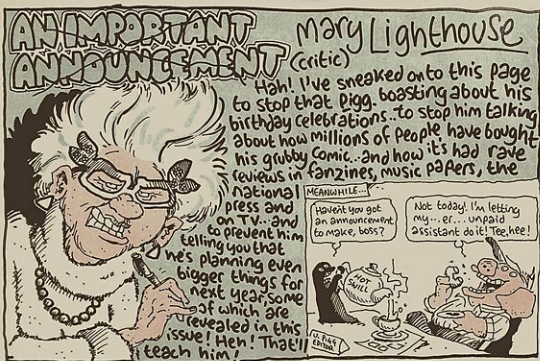 AN IMPORTANT
ANNOUNCEMENT
Mary Lighthouse
(critic)
Hah! I've sneaked onto this page
to stop that Pigg. boasting about his
birthday celebrations..to stop him talking
about how millions of people have bought
his grubby comic...and how it's had rave
reviews in fanzines, music papers, the
national
press and
on TV...and
to prevent him
telling you that
he's planning even
bigger things for
next year, some
of which are
revealed in this
issue! Heh! That'll
teach him!
MEANWHILE...
Haven't you got
an announcement
to make, boss?
Not today! I'm letting
my...er...unpaid
assistant do it! Tee, hee!
HOT
SWILL
U. PIGG
EDITOR